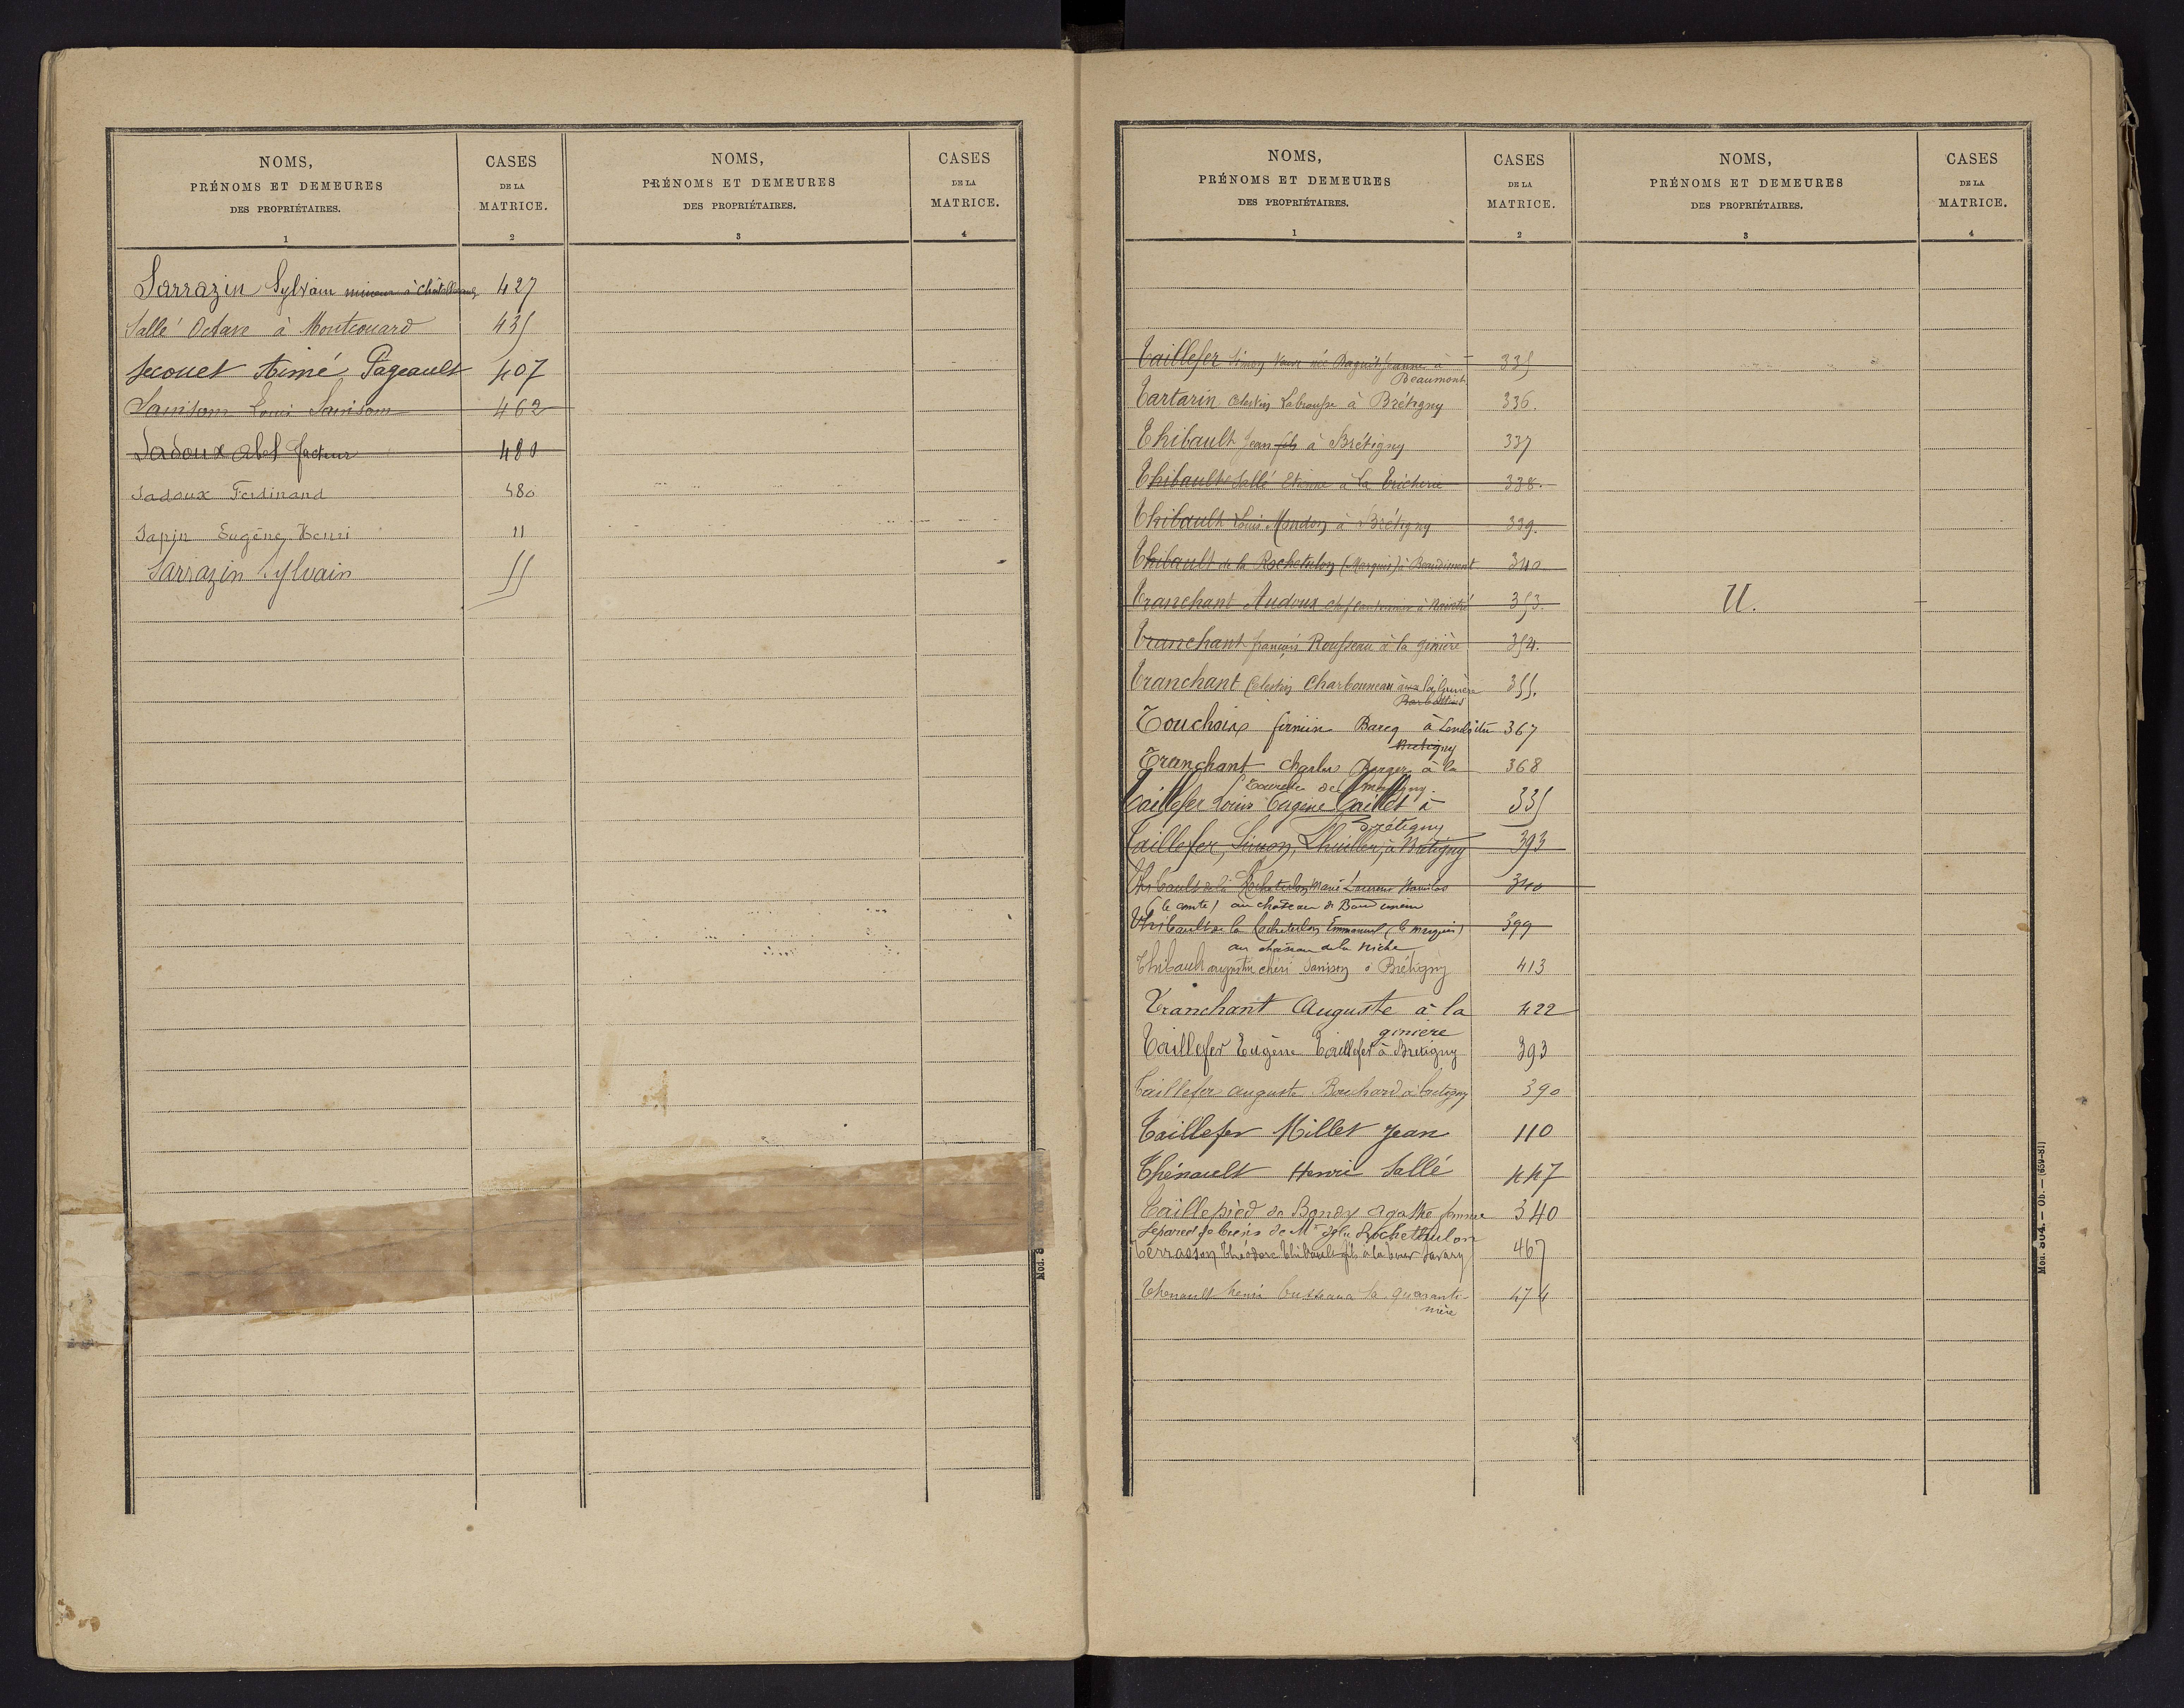 NOMS,
PRÉNOMS ET DEMEURES
DES PROPRIÉTAIRES.
1
CASES
DE LA
MATRICE.
2
NOMS,
PRÉNOMS ET DEMEURES
DES PROPRIÉTAIRES.
3
CASES
DE LA
MATRICE.
4
Sarrazin Sylvain mineur à Châtellerault 427
Sallé Octave à Montcouard 435
Secouet Aimé Pageault 407
Sanisom Louis Sanisom 462
Sadoux abel facteur 480
Sadoux Ferdinand 480
Sapin Eugène, Henri 11
Sarrazin Sylvain 55
NOMS,
PRÉNOMS ET DEMEURES
DES PROPRIÉTAIRES.
1
CASES
DE LA
MATRICE.
2
NOMS,
PRÉNOMS ET DEMEURES
DES PROPRIÉTAIRES.
3
CASES
DE LA
MATRICE.
4
Taillefer Simon Veuve née Jeanne à 335
Beaumont
Tartarin Célestin Labrousse à Brétigny 336.
Thibault Jean fils à Brétigny 337
Thibault Sallé Etienne à la Tricherie 338.
Thibault Louis Mendon à Brétigny 339.
Thibault de la Rochetulon (Marquis) à Beaudiment 340
Tranchant Audoux chef cantonnier à Naintré 353.
Tranchant françois Rousseau à la ginière 354.
Tranchant Célestin Charbonneau à la ginière 355.
Barbottins
Touchois firmin Barcq à 367
Bretigny
Tranchant Charles Berger à la 368
Tourelle de
Taillefer Louis Eugène Caillet à 335
Brétigny
Taillefer, Simon, Lhuillier, à Brétigny 393
Thibault de la Rochetulon Marie Laurence Stanislas 340
(le comte) au chateau de Baudiment
Thibault de la Rochetulon Emmanuel (le marquis) 399
au chateau de la
Thibault augustin chéri Sanison à Brétigny 413
Tranchant Auguste à la 422
ginière
Taillefer Eugène Taillefer à Bretigny 393
Taillefer auguste Bouchard à bretigny 390
Taillefer Millet Jean 110
Thénault Henri Sallé 447
Taillepièd de Bondy Agathe femme 340
séparée de biens de Mr de la Rochethulon
Terrasson Théodore Thibault fils à la tour Savary 467
Thenault henri busseau à la quaranti- 474
nière
U.
Mod. 804. — Ob. — (659-81)